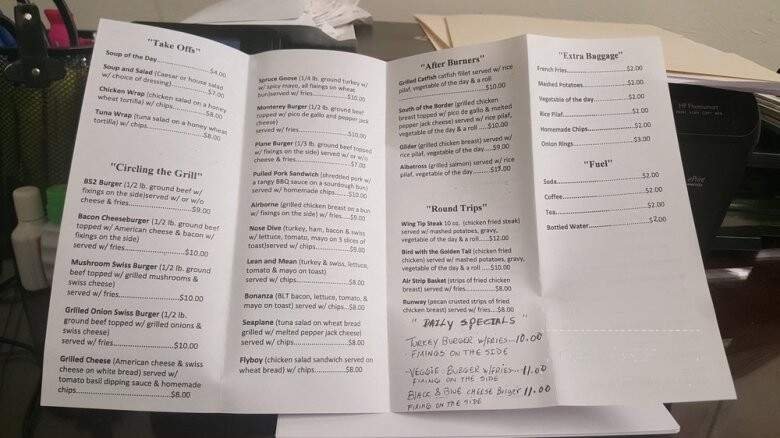 "Take Offs"
Soup of the Day....................$4.00
Soup and Salad (Caesar or house salad
w/ choice of dressing)..................$7.00
Chicken Wrap (chicken salad on a honey
wheat tortilla) w/ chips....................$8.00
Tuna Wrap (tuna salad on a honey wheat
tortilla) w/ chips....................$8.00
"Circling the Grill"
BS2 Burger (1/2 lb. ground beef w/
fixings on the side)served w/ or w/o
cheese & fries....................$9.00
Bacon Cheeseburger (1/2 lb. ground beef
topped w/ American cheese & bacon w/
fixings on the side)
served w/ fries....................$10.00
Mushroom Swiss Burger (1/2 lb. ground
beef topped w/ grilled mushrooms &
swiss cheese)
served w/ fries....................$10.00
Grilled Onion Swiss Burger (1/2 lb.
ground beef topped w/ grilled onions &
swiss cheese)
served w/ fries....................$10.00
Grilled Cheese (American cheese & swiss
cheese on white bread) served w/
tomato basil dipping sauce & homemade
chips....................$8.00
Spruce Goose (1/4 lb. ground turkey w/
w/ spicy mayo, all fixings on wheat
bun)served w/ fries....................$10.00
Monterey Burger (1/2 lb. ground beef
topped w/ pico de gallo and pepper jack
cheese)
served w/ fries....................$10.00
Plane Burger (1/3 lb. ground beef topped
w/ fixings on the side) served w/ or w/o
cheese & fries....................$7.00
Pulled Pork Sandwich (shredded pork w/
a tangy BBQ sauce on a sourdough bun)
served w/ homemade chips....................$10.00
Airborne (grilled chicken breast on a bun
w/ fixings on the side) w/ fries....$9.00
Nose Dive (turkey, ham, bacon & swiss
w/ lettuce, tomato, mayo on 3 slices of
toast)served w/ chips....................$9.00
Lean and Mean (turkey & swiss, lettuce,
tomato & mayo on toast)
served w/ chips....................$8.00
Bonanza (BLT bacon, lettuce, tomato, &
mayo on toast) served w/ chips...$8.00
Seaplane (tuna salad on wheat bread
grilled w/ melted pepper jack cheese)
served w/ chips....................$8.00
Flyboy (chicken salad sandwich served on
wheat bread) w/ chips....................$8.00
"After Burners"
Grilled Catfish catfish fillet served w/ rice
pilaf, vegetable of the day & a roll
....................$10.00
South of the Border (grilled chicken
breast topped w/ pico de gallo & melted
pepper jack cheese) served w/ rice pilaf,
vegetable of the day & a roll.....$10.00
Glider (grilled chicken breast) served w/
rice pilaf, vegetable of the day....$9.00
Albatross (grilled salmon) served w/ rice
pilaf, vegetable of the day........$13.00
"Round Trips"
Wing Tip Steak 10 oz. (chicken fried steak)
served w/ mashed potatoes, gravy,
vegetable of the day & a roll.....$12.00
Bird with the Golden Tail (chicken fried
chicken) served w/ mashed potatoes, gravy,
vegetable of the day & a roll ....$10.00
Air Strip Basket (strips of fried chicken
breast) served w/ fries....................$8.00
Runway (pecan crusted strips of fried
chicken breast) served w/ fries....$8.00
" DAILY SPECIALS "
TURKEY BURGER W/FRIES...10.00
FIXINGS ON THE SIDE
-VEGGIE BURGER W/FRIES...11.00
FIXING ON THE SIDE
BLACK & BLUE CHEESE Burger 11.00
FIXING ON THE SIDE
"Extra Baggage"
French Fries....................$2.00
Mashed Potatoes....................$2.00
Vegetable of the day....................$1.00
Rice Pilaf....................$1.00
Homemade Chips....................$2.00
Onion Rings....................$3.00
"Fuel"
Soda....................$2.00
Coffee....................$2.00
Tea....................$2.00
Bottled Water....................$2.00
HP Photosmart
ePrint